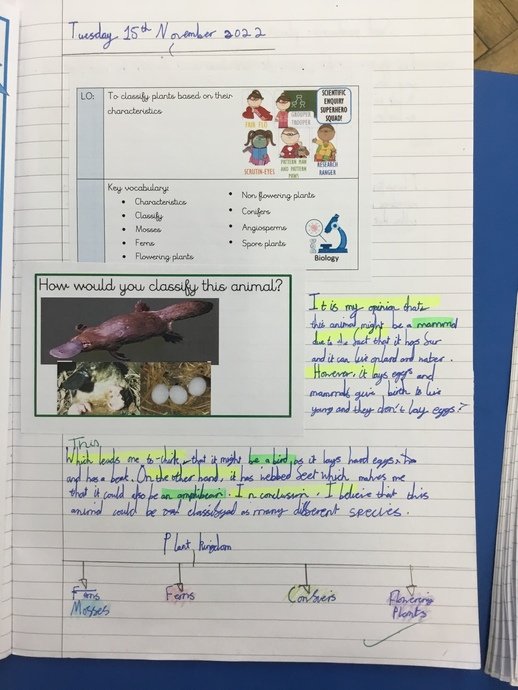 Tuesday 15th November 2022
LO:
To classify plants based on their
characteristics
SCIENTIFIC
ENQUIRY
SUPERHERO
SQUAD!
FAIR FLO
GROUPER
TROOPER
SCRUTIN-EYES
PATTERN MAN
AND PATTERN
PAWS
RESEARCH
RANGER
Key vocabulary:
• Characteristics
• Classify
• Mosses
• Ferns
• Flowering plants
• Non flowering plants
• Conifers
• Angiosperms
• Spore plants
Biology
How would you classify this animal?
It is my opinion that
this animal might be a mammal
due to the fact that it has fur
and it can live on land and water.
However, it lays eggs and
mammals give birth to live
young and they don't lay eggs?
This
Which leads me to think, that it might be a bird, as it lays hard eggs,
and has a beak. On the other hand, it has webbed feet which makes me
that it could also be an amphibean. In conclusion, I believe that this
animal could be classifyed as many different species.
Plant kingdom
Ferns
Mosses
Ferns
Conifers
Flowering
Plants